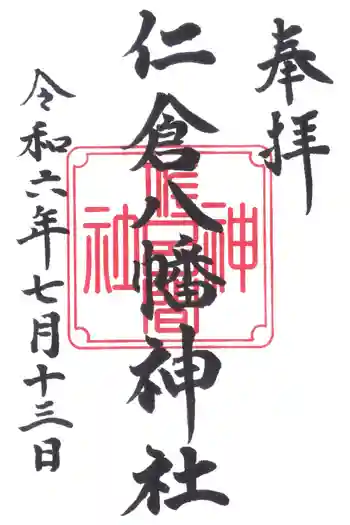 奉拝
仁倉八幡神社
神社
令和六年七月十三日